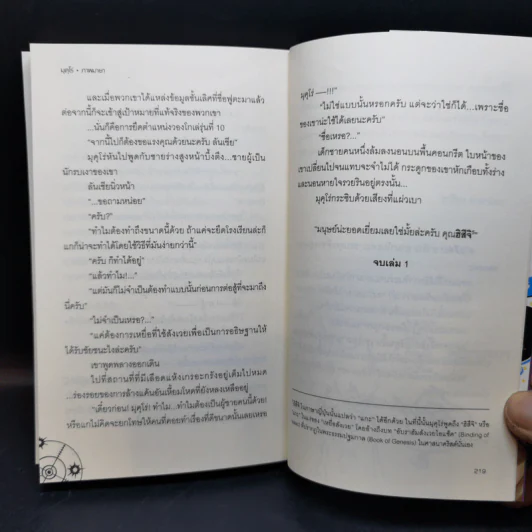 มุคุโร่ • ภาพมายา
และเมื่อพวกเขาได้แหล่งข้อมูลชั้นเลิศที่ชื่อฟูตะมาแล้ว
ต่อจากนี้ก็จะเข้าสู่เป้าหมายที่แท้จริงของพวกเขา
...นั่นก็คือการยึดตำแหน่งวองโกเล่รุ่นที่ 10
"จากนี้ไปก็ต้องขอแรงคุณด้วยนะครับ ลันเชีย"
มุคุโร่หันไปพูดกับชายร่างสูงหน้าบึ้งตึง...ชายผู้เป็น
นักรบเงาของเขา
ลันเชียนิ่วหน้า
"...ขอถามหน่อย"
"ครับ?"
"ทำไมต้องทำถึงขนาดนี้ด้วย ถ้าแค่จะยึดโรงเรียนล่ะก็
แกก็น่าจะทำได้โดยใช้วิธีที่มันง่ายกว่านี้"
"ครับ ก็ทำได้อยู่"
"แล้วทำไม!..."
"แต่มันก็ไม่จำเป็นต้องทำแบบนั้นก่อนการต่อสู้ที่จะมาถึง
นี่ครับ"
"ไม่จำเป็นเหรอ?..."
"แค่ต้องการเหยื่อที่ใช้สังเวยเพื่อเป็นการอธิษฐานให้
ได้รับชัยชนะไงล่ะครับ"
เขาพูดพลางออกเดิน
ไปที่สถานที่ที่มีเลือดแห้งเกรอะกรังอยู่เต็มไปหมด
...ร่องรอยของการล้างแค้นอันเหี้ยมโหดที่ยังหลงเหลืออยู่
"เดี๋ยวก่อน! มุคุโร่! ทำไม...ทำไมต้องเป็นผู้ชายคนนี้ด้วย!
หรือแกไม่คิดจะยกโทษให้คนที่คอยทำเรื่องที่ดีขนาดนั้นเลยเหรอ
มุคุโร่ ——!!!"
"ไม่ใช่แบบนั้นหรอกครับ แต่จะว่าใช่ก็ได้...เพราะชื่อ
ของเขาน่ะใช้ได้เลยนะครับ"
"ชื่อเหรอ?..."
เด็กชายคนหนึ่งล้มลงนอนบนพื้นคอนกรีต ใบหน้าของ
เขาเปลี่ยนไปจนแทบจะจำไม่ได้ กระดูกของเขาหักเกือบทั้งร่าง
และนอนหายใจรวยรินอยู่ตรงนั้น...
มุคุโร่กระซิบด้วยเสียงที่แผ่วเบา
"มนุษย์น่ะยอดเยี่ยมเลยใช่มั้ยล่ะครับ คุณฮิสึจิ"
จบเล่ม 1
ฮิสึจิ ในภาษาญี่ปุ่นนั้นแปลว่า "แกะ" ได้อีกด้วย ในที่นี้นั้นมุคุโร่พูดถึง "ฮิสึจิ" หรือ
(Binding of
(Book of Genesis) ในศาสนาคริสต์นั่นเอง
219